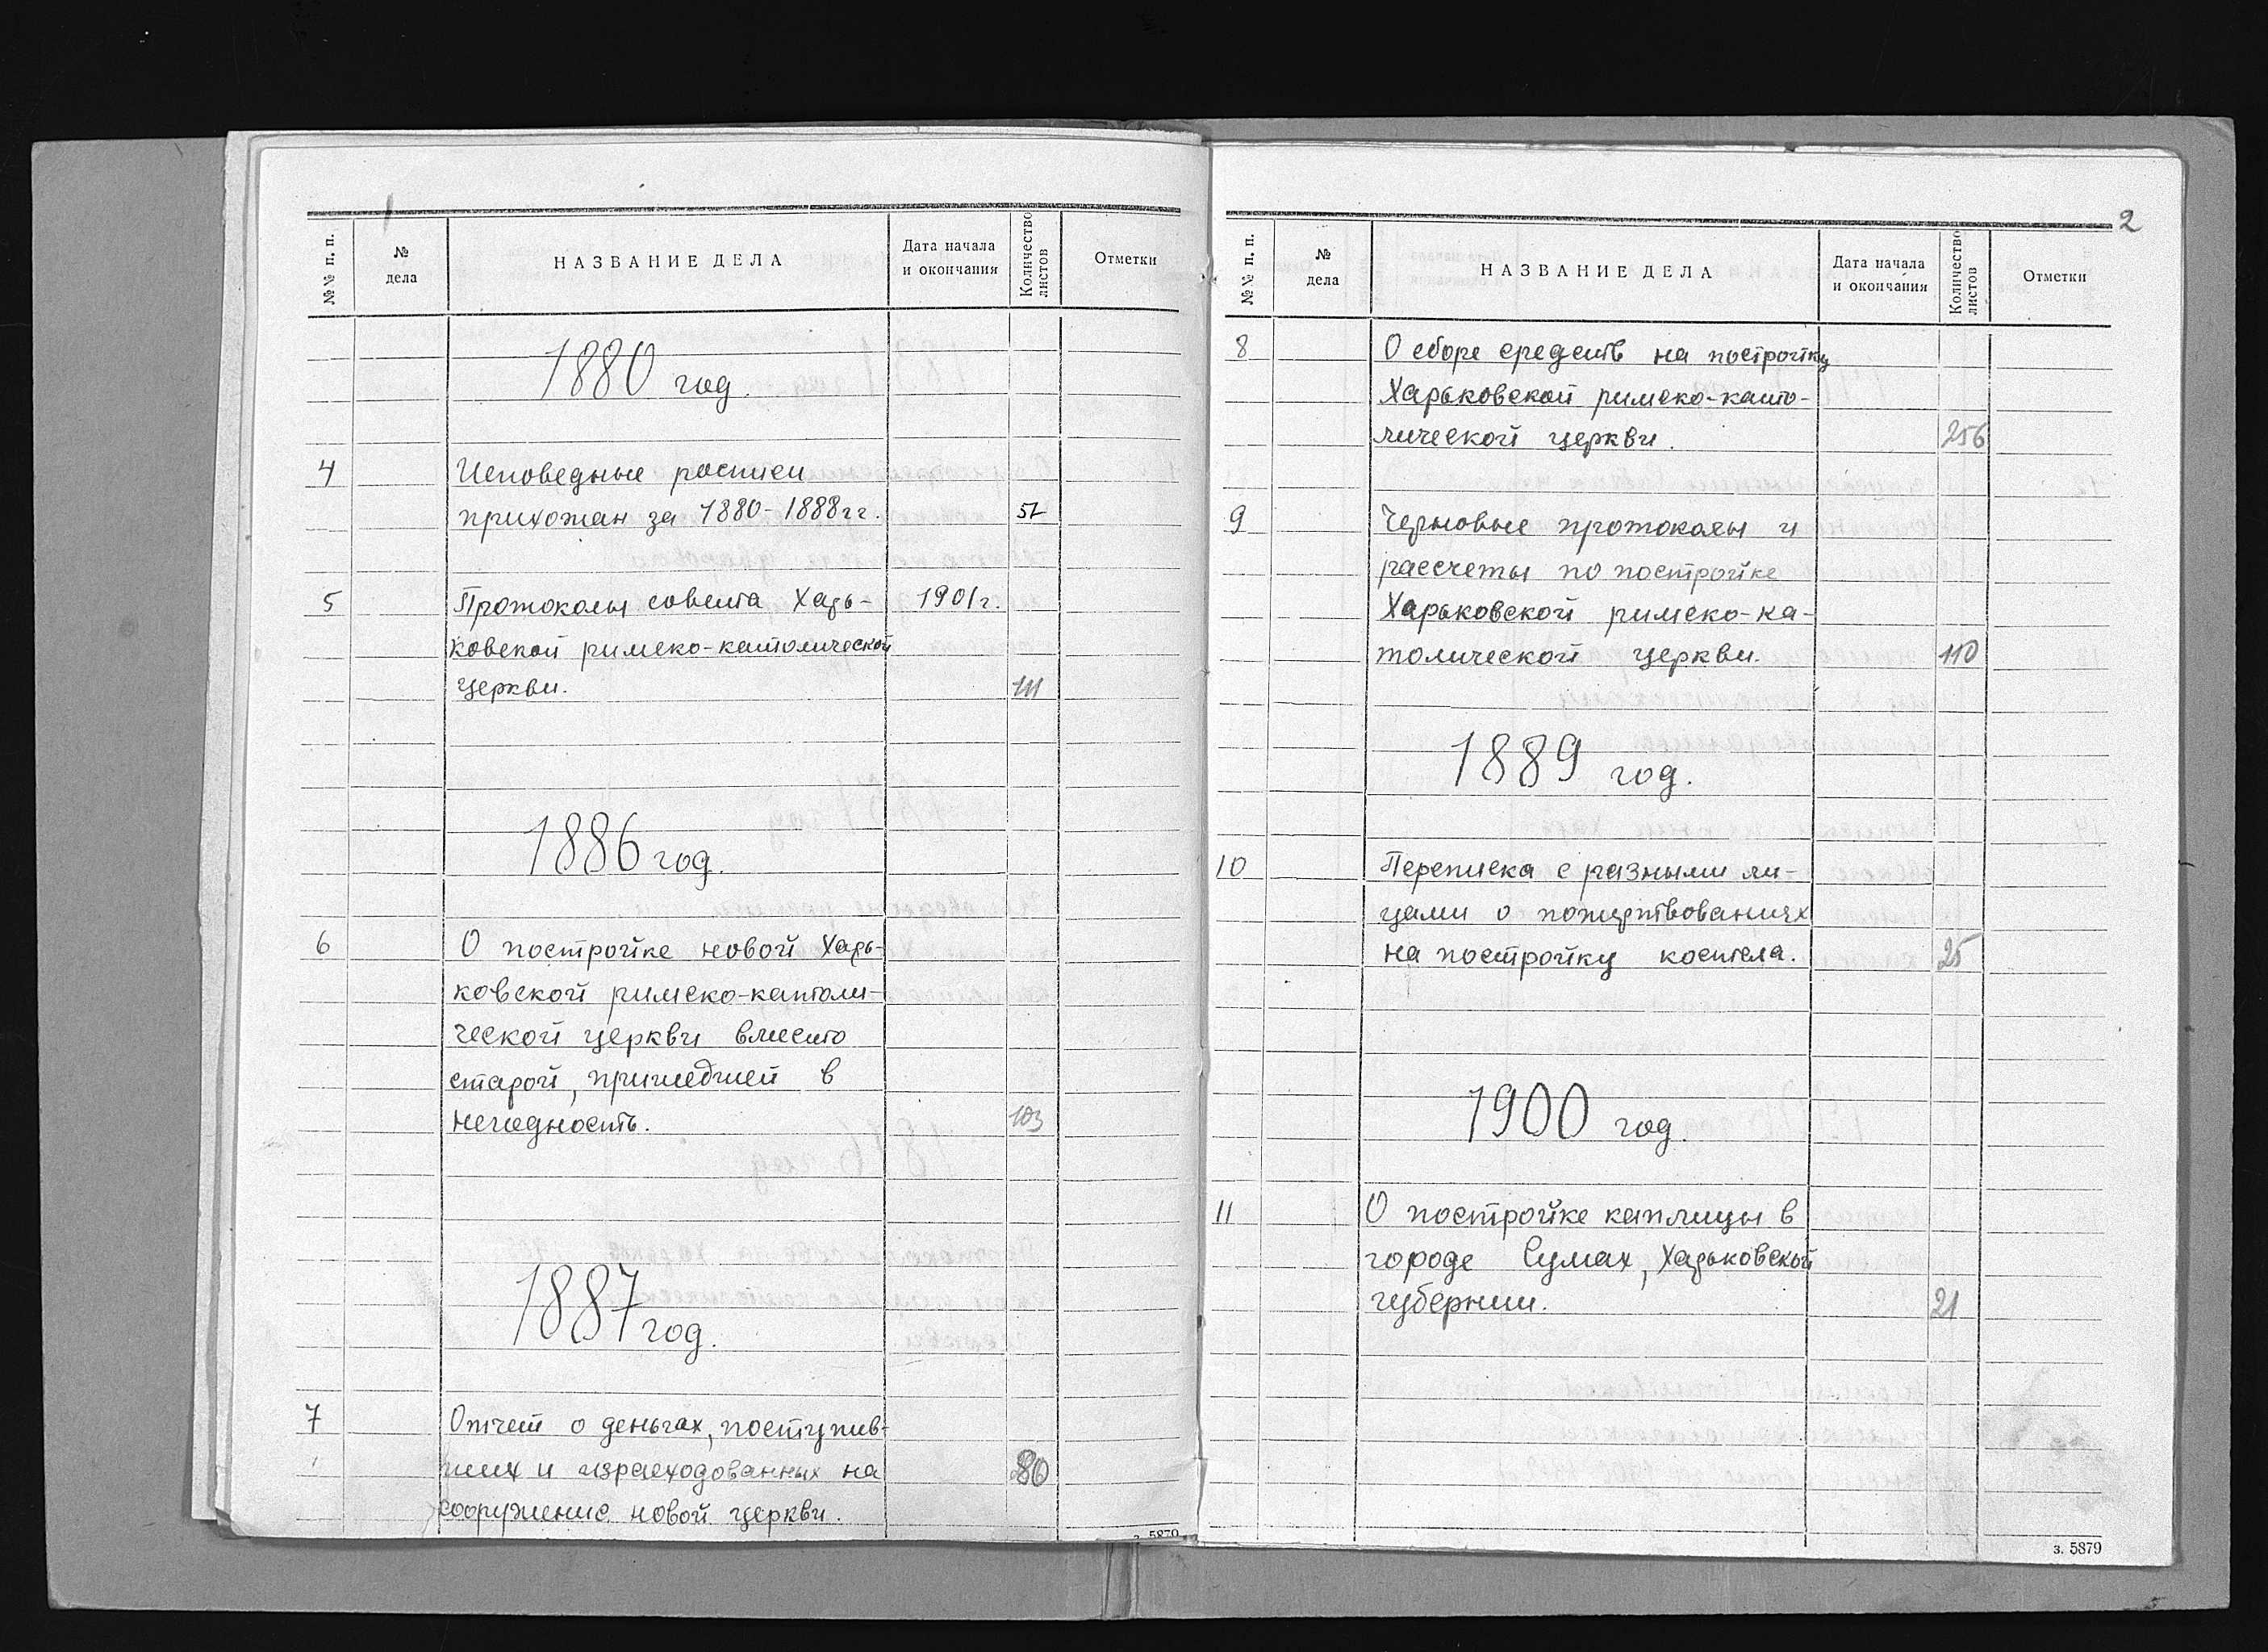 1
№№ п. п.
№ дела
НАЗВАНИЕ ДЕЛА
Дата начала и окончания
Количество листов
Отметки
1880 год.
4 Исповедные росписи
прихожан за 1880-1888 гг.
5 Протоколы совета Харь- 1901 г.
ковской римско-католической
церкви. 111
1886 год.
6 О постройке новой Харь-
ковской римско-католи-
ческой церкви вместо
старой, пришедшей в
негодность. 103
1887 год.
7 Отчет о деньгах, поступив-
ших и израсходованных на 80
сооружение новой церкви.
з. 5879
2
№№ п. п.
№ дела
НАЗВАНИЕ ДЕЛА
Дата начала и окончания
Количество листов
Отметки
8 О сборе средств на постройку
Харьковской римско-като-
лической церкви. 256
9 Черновые протоколы и
рассчеты по постройке
Харьковской римско-ка-
толической церкви. 110
1889 год.
10 Переписка с разными ли-
цами о пожертвованиях
на постройку костела. 25
1900 год.
11 О постройке каплицы в
городе Сумах, Харьковской
губернии. 21
з. 5879